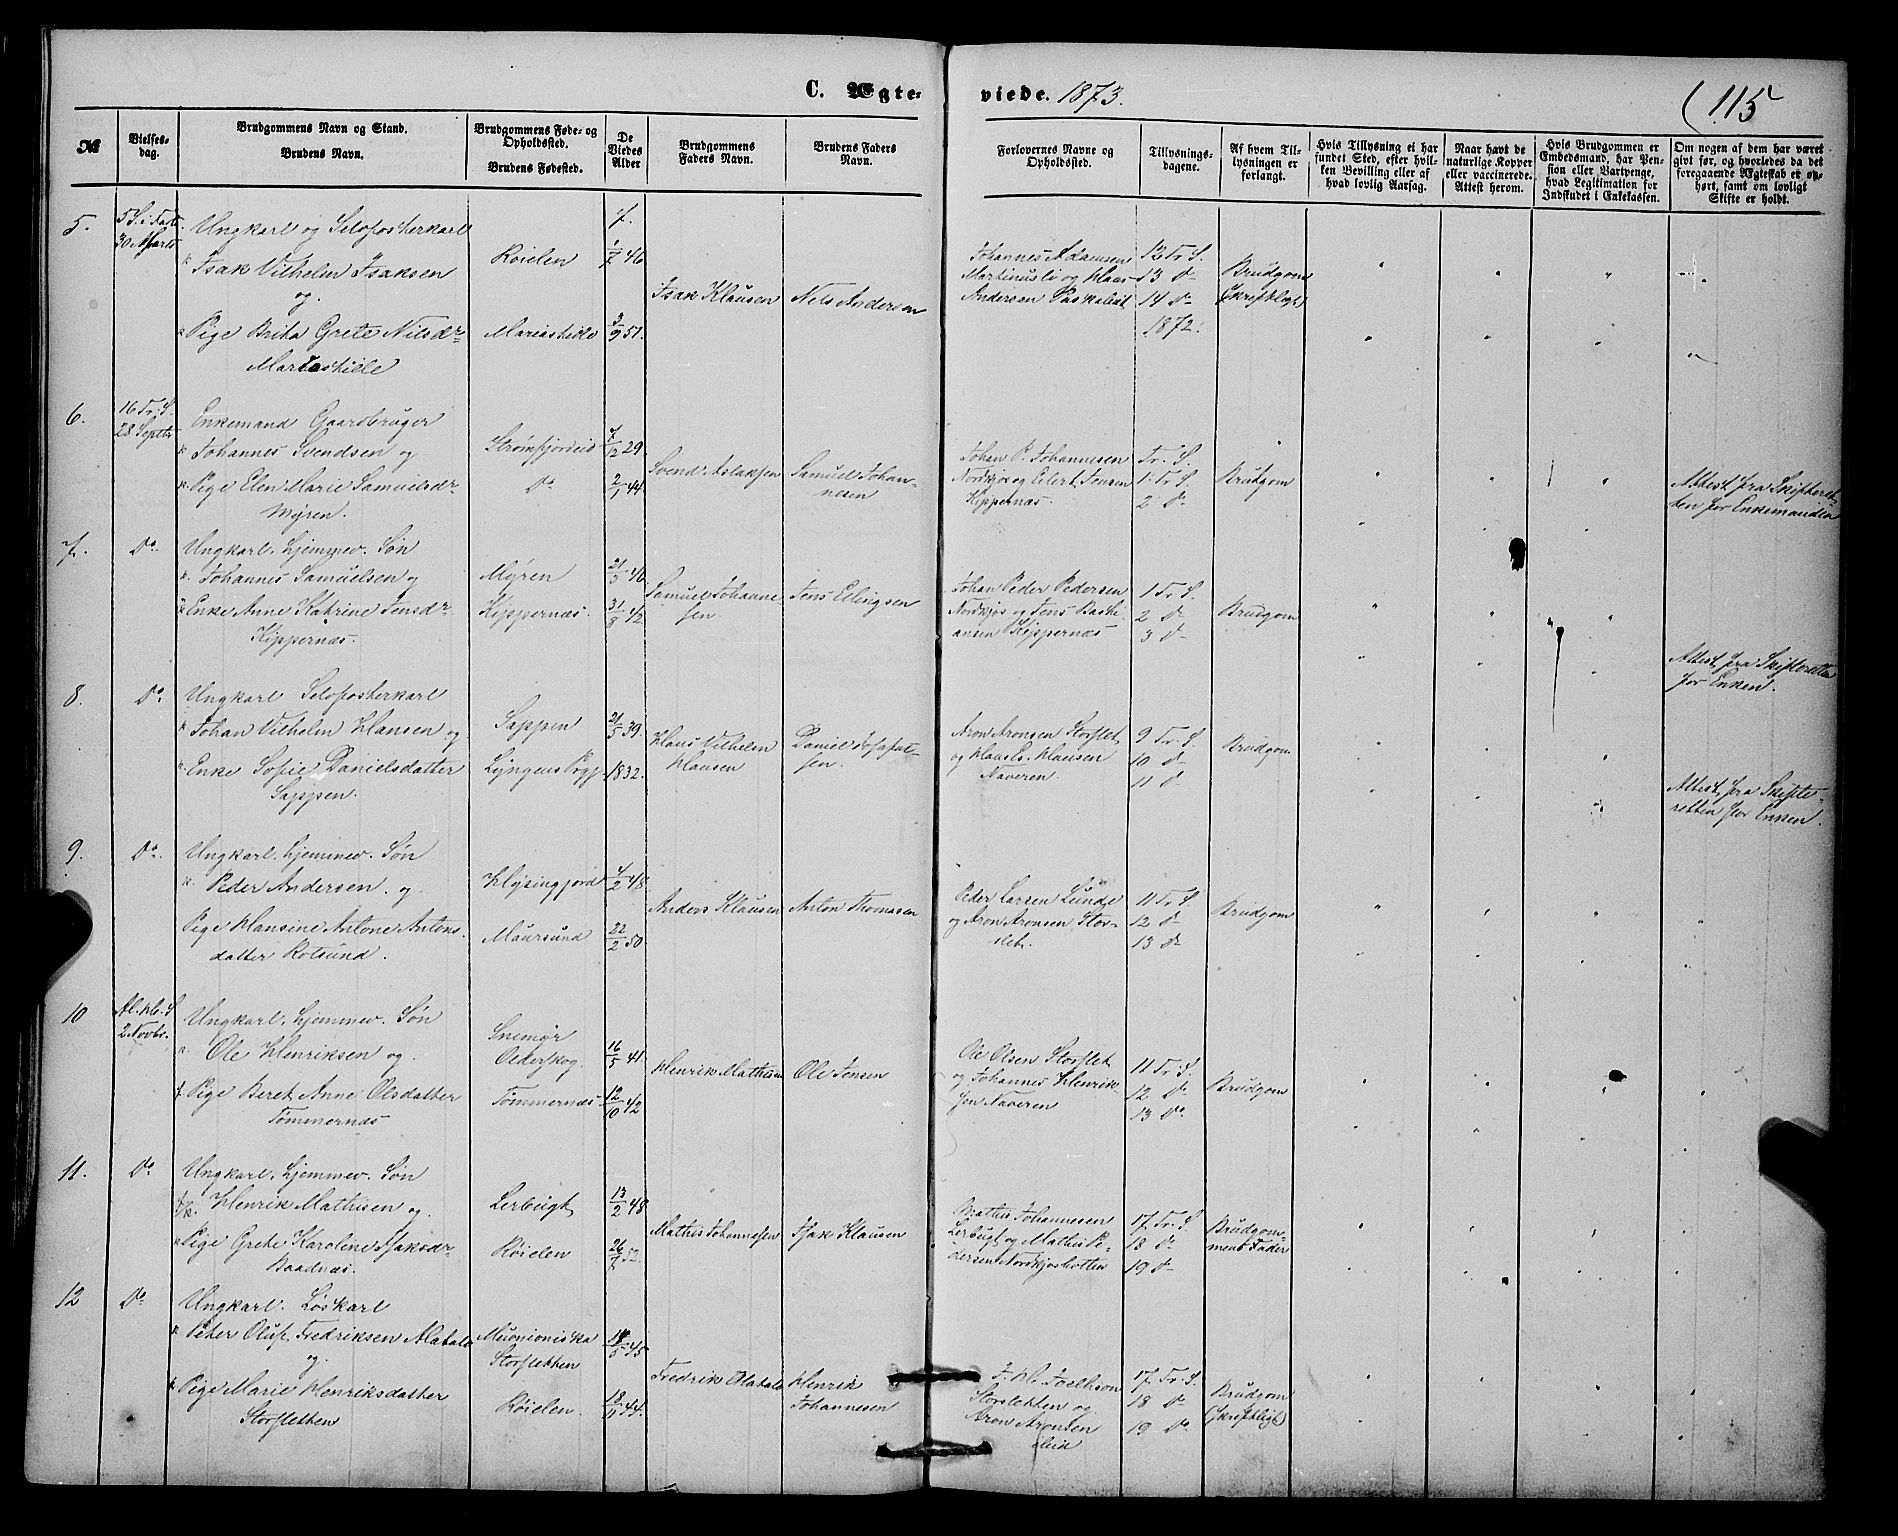 C. Ægteviede. 1873.
115
№
Vielsesdag.
Brudgommens Navn og Stand.
Brudens Navn.
Brudgommens Føde- og Opholdssted.
Brudens Fødested.
De Viedes Alder
Brudgommens Faders Navn.
Brudens Faders Navn.
Forlovernes Navne og Opholdssted.
Tillysningsdagene.
Af hvem Tillysningen er forlangt.
Hvis Tillysning ei har fundet Sted, efter hvilken Bevilling eller af hvad lovlig Aarsag.
Naar havt de naturlige Kopper eller vaccinerede. Attest herom.
Hvis Brudgommen er Embedsmand, har Pension eller Vartpenge, hvad Legitimation for Indskudet i Enkekassen.
Om nogen af dem har været givt før, og hvorledes da det foregaaende Ægteskab er ophørt, samt om lovligt Skifte er holdt.
5.
5 S. i Faste
30 Marts
Ungkarl og Selvfosterkarl
Isak Vilhelm Isaksen
og
Pige Brita Grete Nilsdr
Mariashille
Røielen
Mariashille
1/7 46
3/9 51.
Isak Klausen
Nels Andersen
Johannes Adamsen
Martinusli og Klaus
Andersen Paskaleit
12 Tr. S.
13 do
14 do
1872.
Brudgom
(skriftligt)
6.
16 Tr. S.
28 Septbr
Enkemand Gaardbruger
Johannes Svendsen og
Pige Elen Marie Samuelsdr
Myren.
Strømfjordeid
Do
7/12 29.
2/1 44
Svend Aslaksen
Samuel Johannesen
Johan P. Johannesen
Nordkjos og Eilert Jensen
Kippernæs.
Tr. S.
1 Tr. S.
2 do
Brudgom
Attest fra Skifteretten for Enkemanden
7.
Do.
Ungkarl, hjemmev. Søn
Johannes Samuelsen og
Enke Anne Kathrine Jensdr
Kippernæs.
Myren
Kippernæs.
21/5 40
31/8 42
Samuel Johannesen.
Jens Ellingsen
Johan Peder Pedersen
Nordkjos og Jens Bastiansen Kippernæs
1 Tr. S.
2 do
3 do
Brudgom
Attest fra Skifteretten
for Enken.
8.
Do.
Ungkarl Selvfosterkarl
Johan Vilhelm Hansen og
Enke Sofie Danielsdatter
Sappen.
Sappen
Lyngens Prgj.
21/5 39.
1832.
Hans Vilhelm
Hansen
Daniel Josefsen.
Aron Aronsen Storslet
og Hans E. Hansen
Naveren.
9 Tr. S.
10 do
11 do
Brudgom
Attest fra Skifteretten for Enken.
9.
Do.
Ungkarl, hjemmev. Søn
Peder Andersen og
Pige Hansine Antone Antonsdatter Rotsund.
Hysingjord
Maursund
4/2 48.
22/2 50.
Anders Klausen
Anton Thomasen
Peder Larsen Lunde
og Aron Aronsen Storslet.
11 Tr. S.
12 do
13 do
Brudgom
10
Al. H. S
2 Novbr.
Ungkarl, hjemmev. Søn
Ole Henriksen og
Pige Beret Anne Olsdatter
Tømmernæs
Snemyr
Olderskog.
Tømmernæs
16/5 41.
12/10 42
Henrik Mathisen
Ole Jensen
Ole Olsen Storslet
og Johannes Henriksen Naveren
11 Tr. S.
12 do
13 do
Brudgom
11.
Do
Ungkarl, hjemmev. Søn
Henrik Mathisen og
Pige Grete Karoline Isaksdr
Baadnæs.
Lerbugt
Røielen
13/2 48
26/7 52
Mathis Johannesen
Isak Klausen
Mathis Johannesen
Lerbugt og Mathis Pedersen Nordkjosbotten
17 Tr. S.
18 do
19 do
Brudgommens Fader
12
Do
Ungkarl. Løskarl
Peter Oluf Fredriksen Alatalo
og
Pige Marie Henriksdatter
Storsletten
Muonioniska
Storsletten
Røielen.
14/5 45
18/11 44.
Fredrik Alatalo
Henrik
Johannesen
J. H. Joelhson
Storsletten og
Aron Aronsen
Hid
17 Tr. S.
18 do
19 do
Brudgom
(skriftligt)